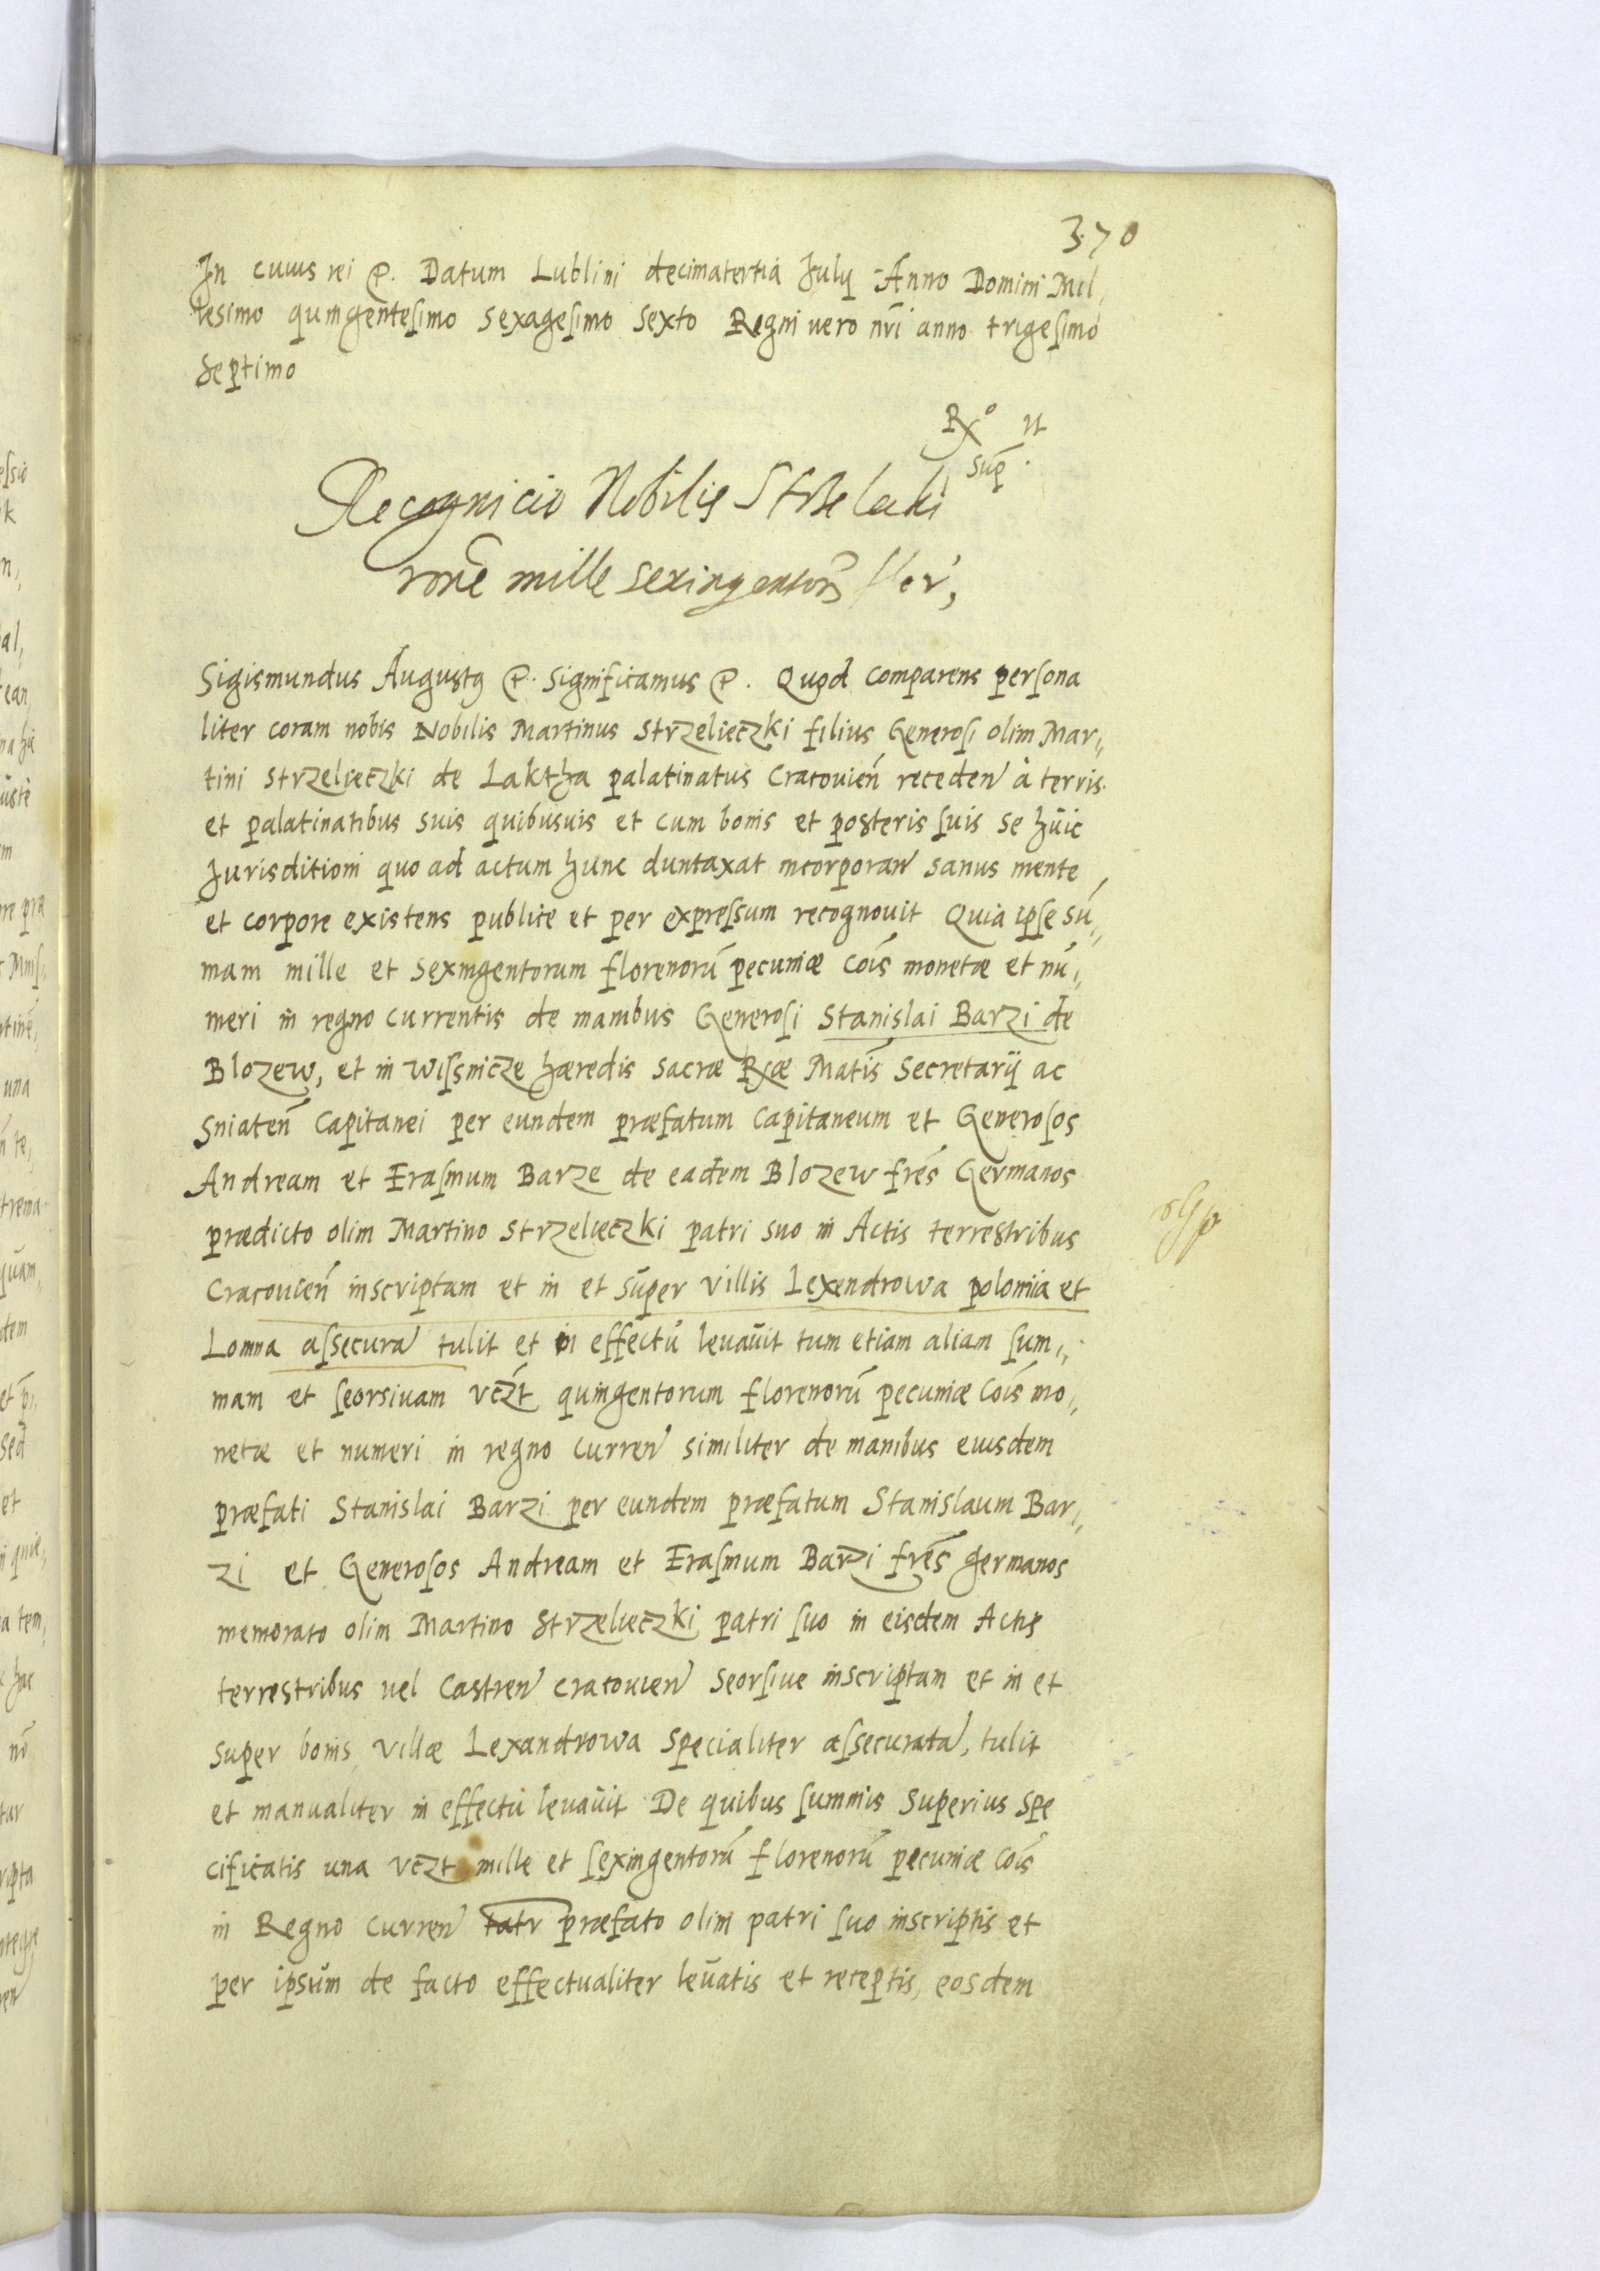 370
In cuius rei etc. Datum Lublini decimatertia July Anno Domini Mil,
lesimo quingentesimo sexagesimo sexto Regni vero nr̄i anno trigesimo
septimo
Rx° ut
sup̄.
Recognicio Nobilis Strzelecki
rōne mille sexingentor̄ flor,
Sigismundus Augustꝰ etc. Significamus etc. Quod comparens persona
liter coram nobis Nobilis Martinus Strzelieczki filius Generosi olim Mar,,
tini Strzelieczki de Laktha palatinatus Cracouien̄ receden̄ à terris
et palatinatibus suis quibusuis et cum bonis et posteris suis se hüic
Jurisditioni quo ad actum hunc duntaxat incorporan̄ sanus mente
et corpore existens publice et per expressum recognouit Quia ipse su,,
mam mille et sexingentorum florenorū pecuniæ cōis monetæ et nu,,
meri in regno currentis de manibus Generosi Stanislai Barzi de
Blozew, et in Wissnicze hæredis sacræ Rxæ Matīs Secretarij ac
Sniaten̄ Capitanei per eundem præfatum Capitaneum et Generosos
Andream et Erasmum Barze de eadem Blozew frēs Germanos
prædicto olim Martino Strzelieczki patri suo in Actis terrestribus
Cracouien̄ inscriptam et in et super villis Lexendrowa polomia et
Lomna assecura̅ tulit et in effectu leuauit tum etiam aliam sum,,
mam et seorsiuam vcz̄t quingentorum florenorū pecuniæ cōis mo,,
netæ et numeri in regno curren̄ similiter de manibus eiusdem
præfati Stanislai Barzi per eundem præfatum Stanislaum Bar,,
zi et Generosos Andream et Erasmum Barzi frēs germanos
memorato olim Martino Strzelieczki patri suo in eisdem Actis
terrestribus vel Castren̄ cracouien̄ seorsiue inscriptam et in et
super bonis villæ Lexandrowa specialiter assecurata̅, tulit
et manualiter in effectu leuauit De quibus summis superius spe
cificatis una vczt mille et sexingentorū florenorū pecuniæ cōis
in Regno curren̄ tatr præfato olim patri suo inscriptis et
per ipsum de facto effectualiter leuatis et receptis, eosdem